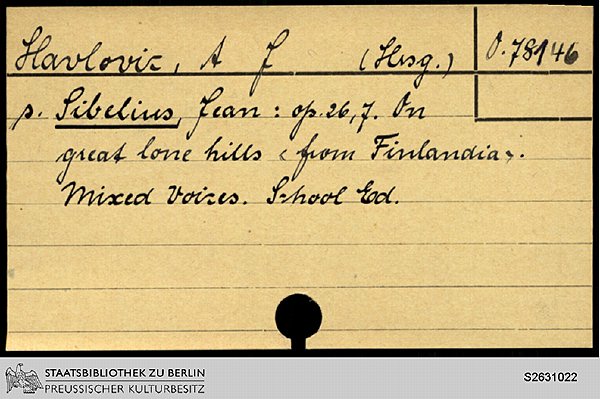 Havlovic, A J (Hrsg.) O.78146
s. Sibelius, Jean: op.26,7. On
great lone hills <from Finlandia>.
Mixed Voices. School Ed.
STAATSBIBLIOTHEK ZU BERLIN
PREUSSISCHER KULTURBESITZ
S2631022